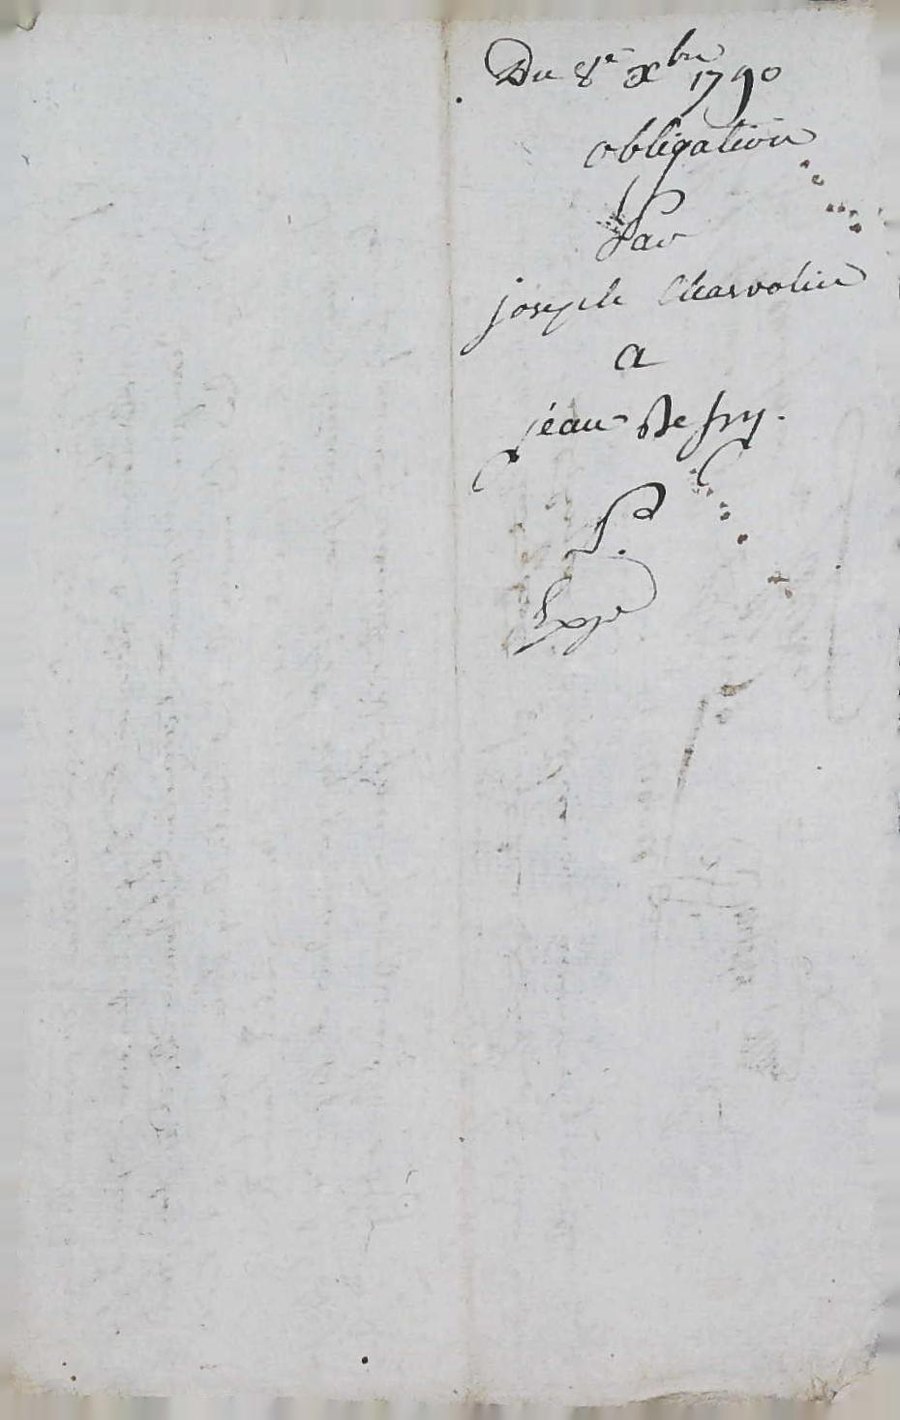 Du 8e Xbre 1790
obligation
Par
joseph Charvolin
a
jéan Bessy.
P.
Expe